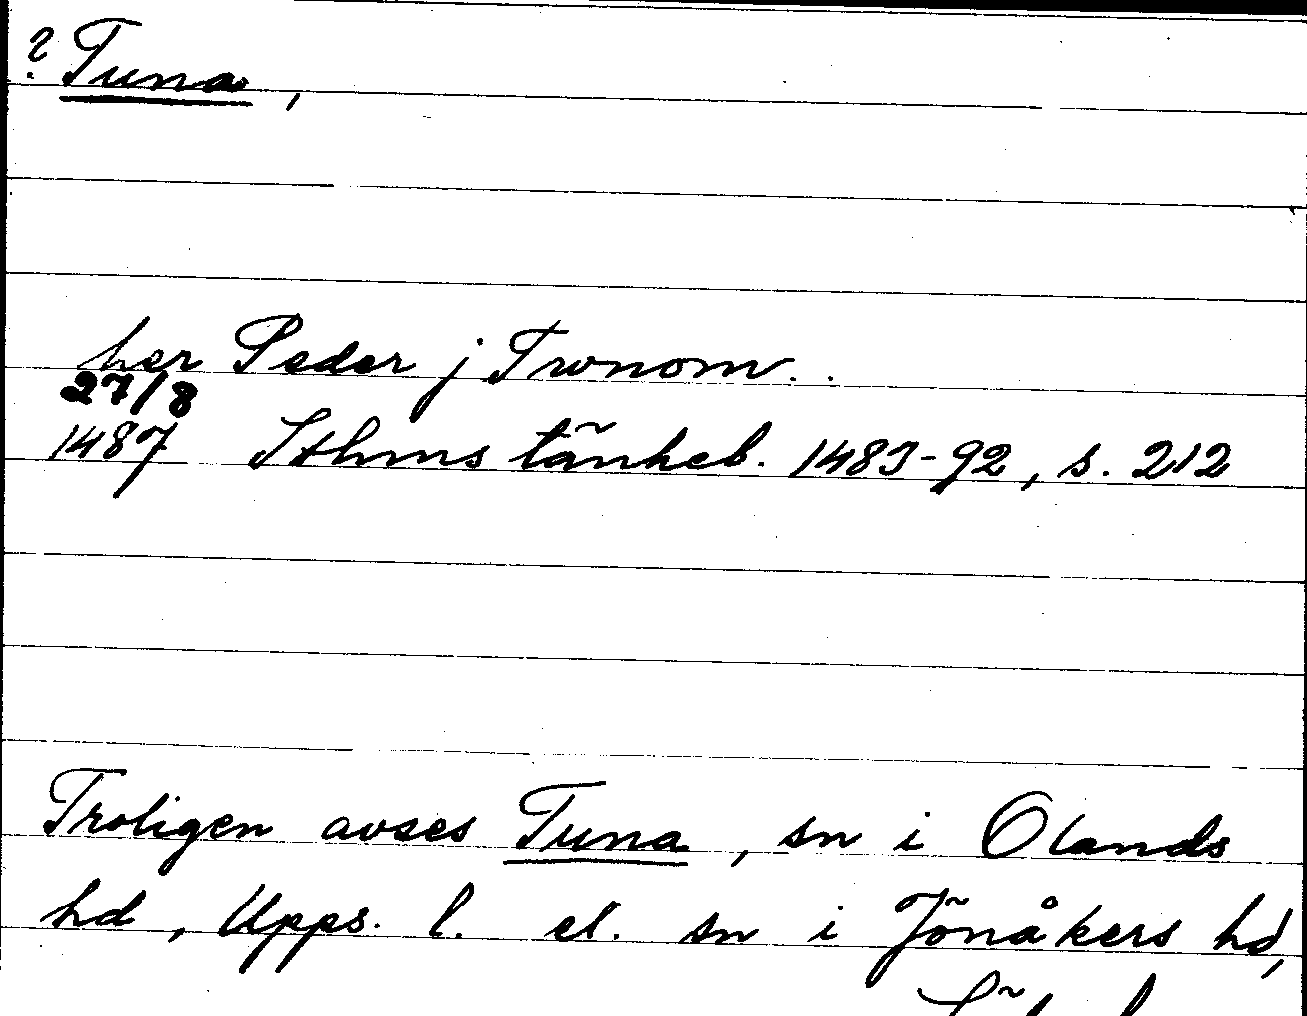 ? Tuna,
her Peder j Twnom..
27/8
1487 Sthms tänkeb. 1483-92, s. 212
Troligen avses Tuna, sn i Olands
hd, Upps. l. el. sn i Jönåkers hd,